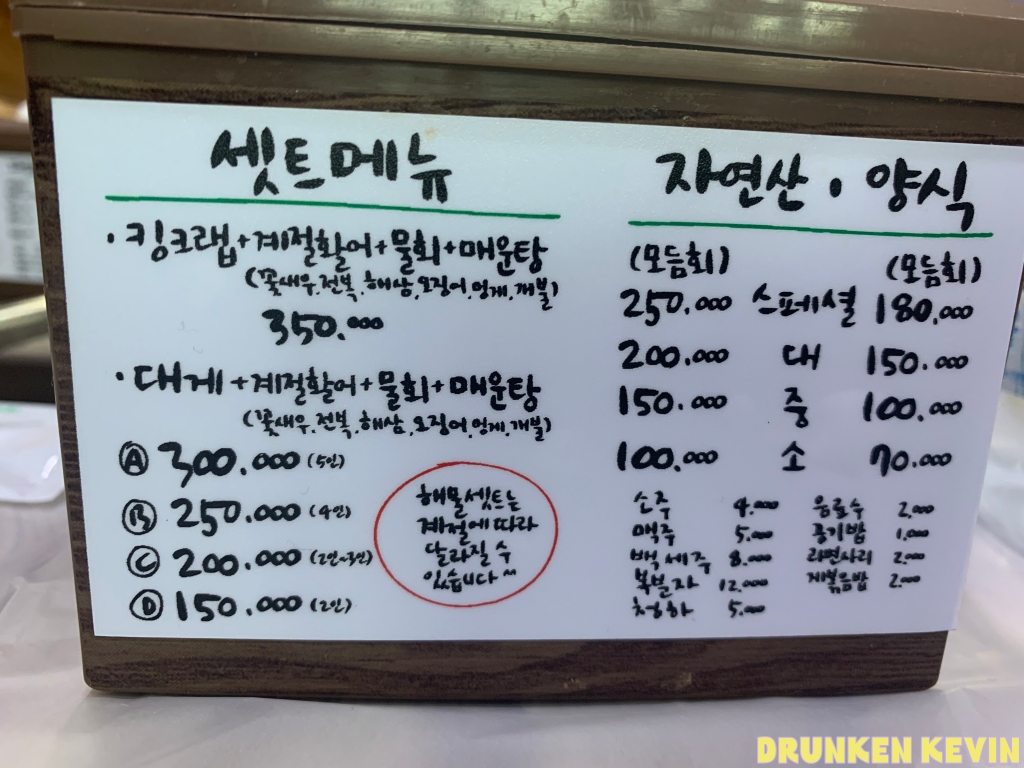 셋트메뉴
· 킹크랩+계절활어+물회+매운탕
(꽃새우.전복.해삼.오징어.멍게.개불)
350.000
· 대게+계절활어+물회+매운탕
(꽃새우.전복.해삼.오징어.멍게.개불)
Ⓐ 300.000 (5인)
Ⓑ 250.000 (4인)
Ⓒ 200.000 (2인~3인)
Ⓓ 150.000 (2인)
해물셋트는
계절에 따라
달라질 수
있습니다~
자연산 · 양식
(모듬회) (모듬회)
250.000 스페셜 180.000
200.000 대 150.000
150.000 중 100.000
100.000 소 70.000
소주 4.000 음료수 2.000
맥주 5.000 공기밥 1.000
백세주 8.000 라면사리 2.000
복분자 12.000 게볶음밥 2.000
청하 5.000
DRUNKEN KEVIN